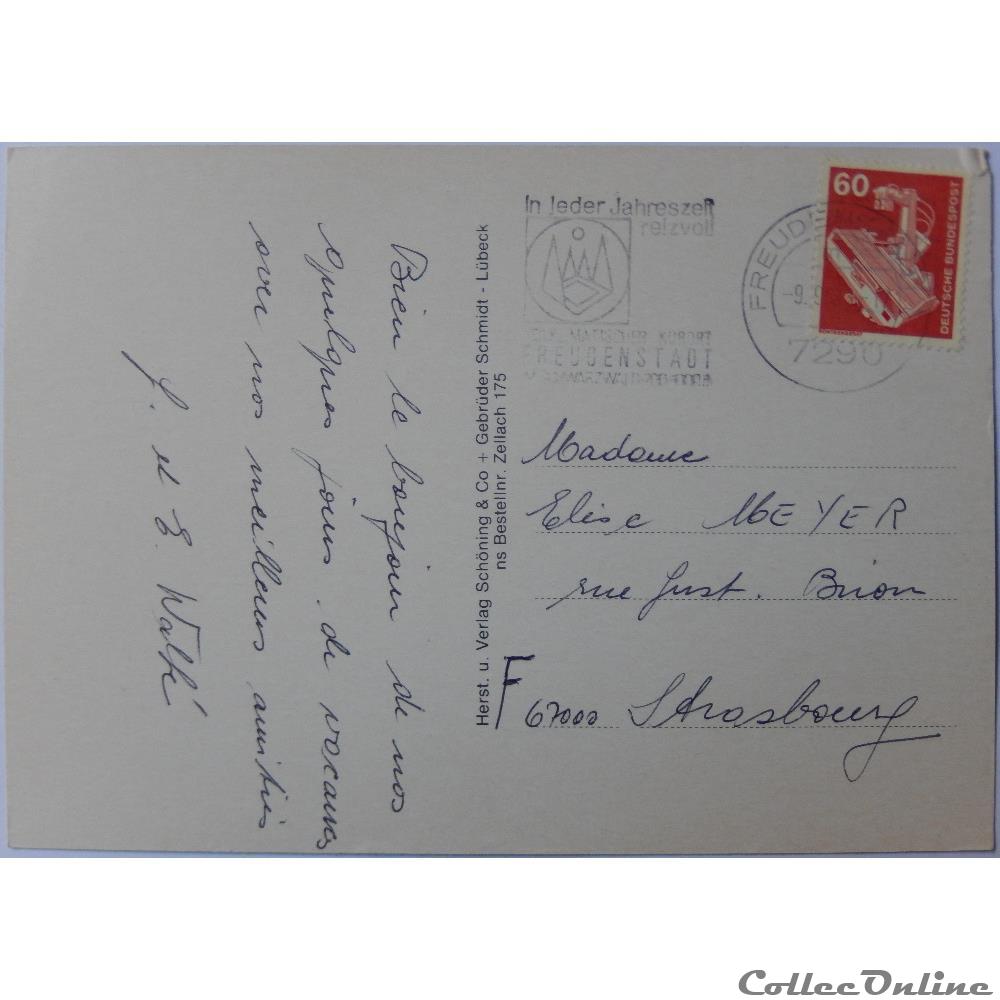 Bien le bonjour de nos
quelques jours de vacances
avec nos meilleurs amitiés
J. et E. Walté
Herst. u. Verlag Schöning & Co + Gebrüder Schmidt - Lübeck
ns Bestellnr. Zellach 175
In jeder Jahreszeit
reizvoll
KURORT
FREUDENSTADT
FREUD
-9.
7290
60
DEUTSCHE BUNDESPOST
Madame
Elise MEYER
rue Gust. Brion
F 67000 Strasbourg
CollecOnline